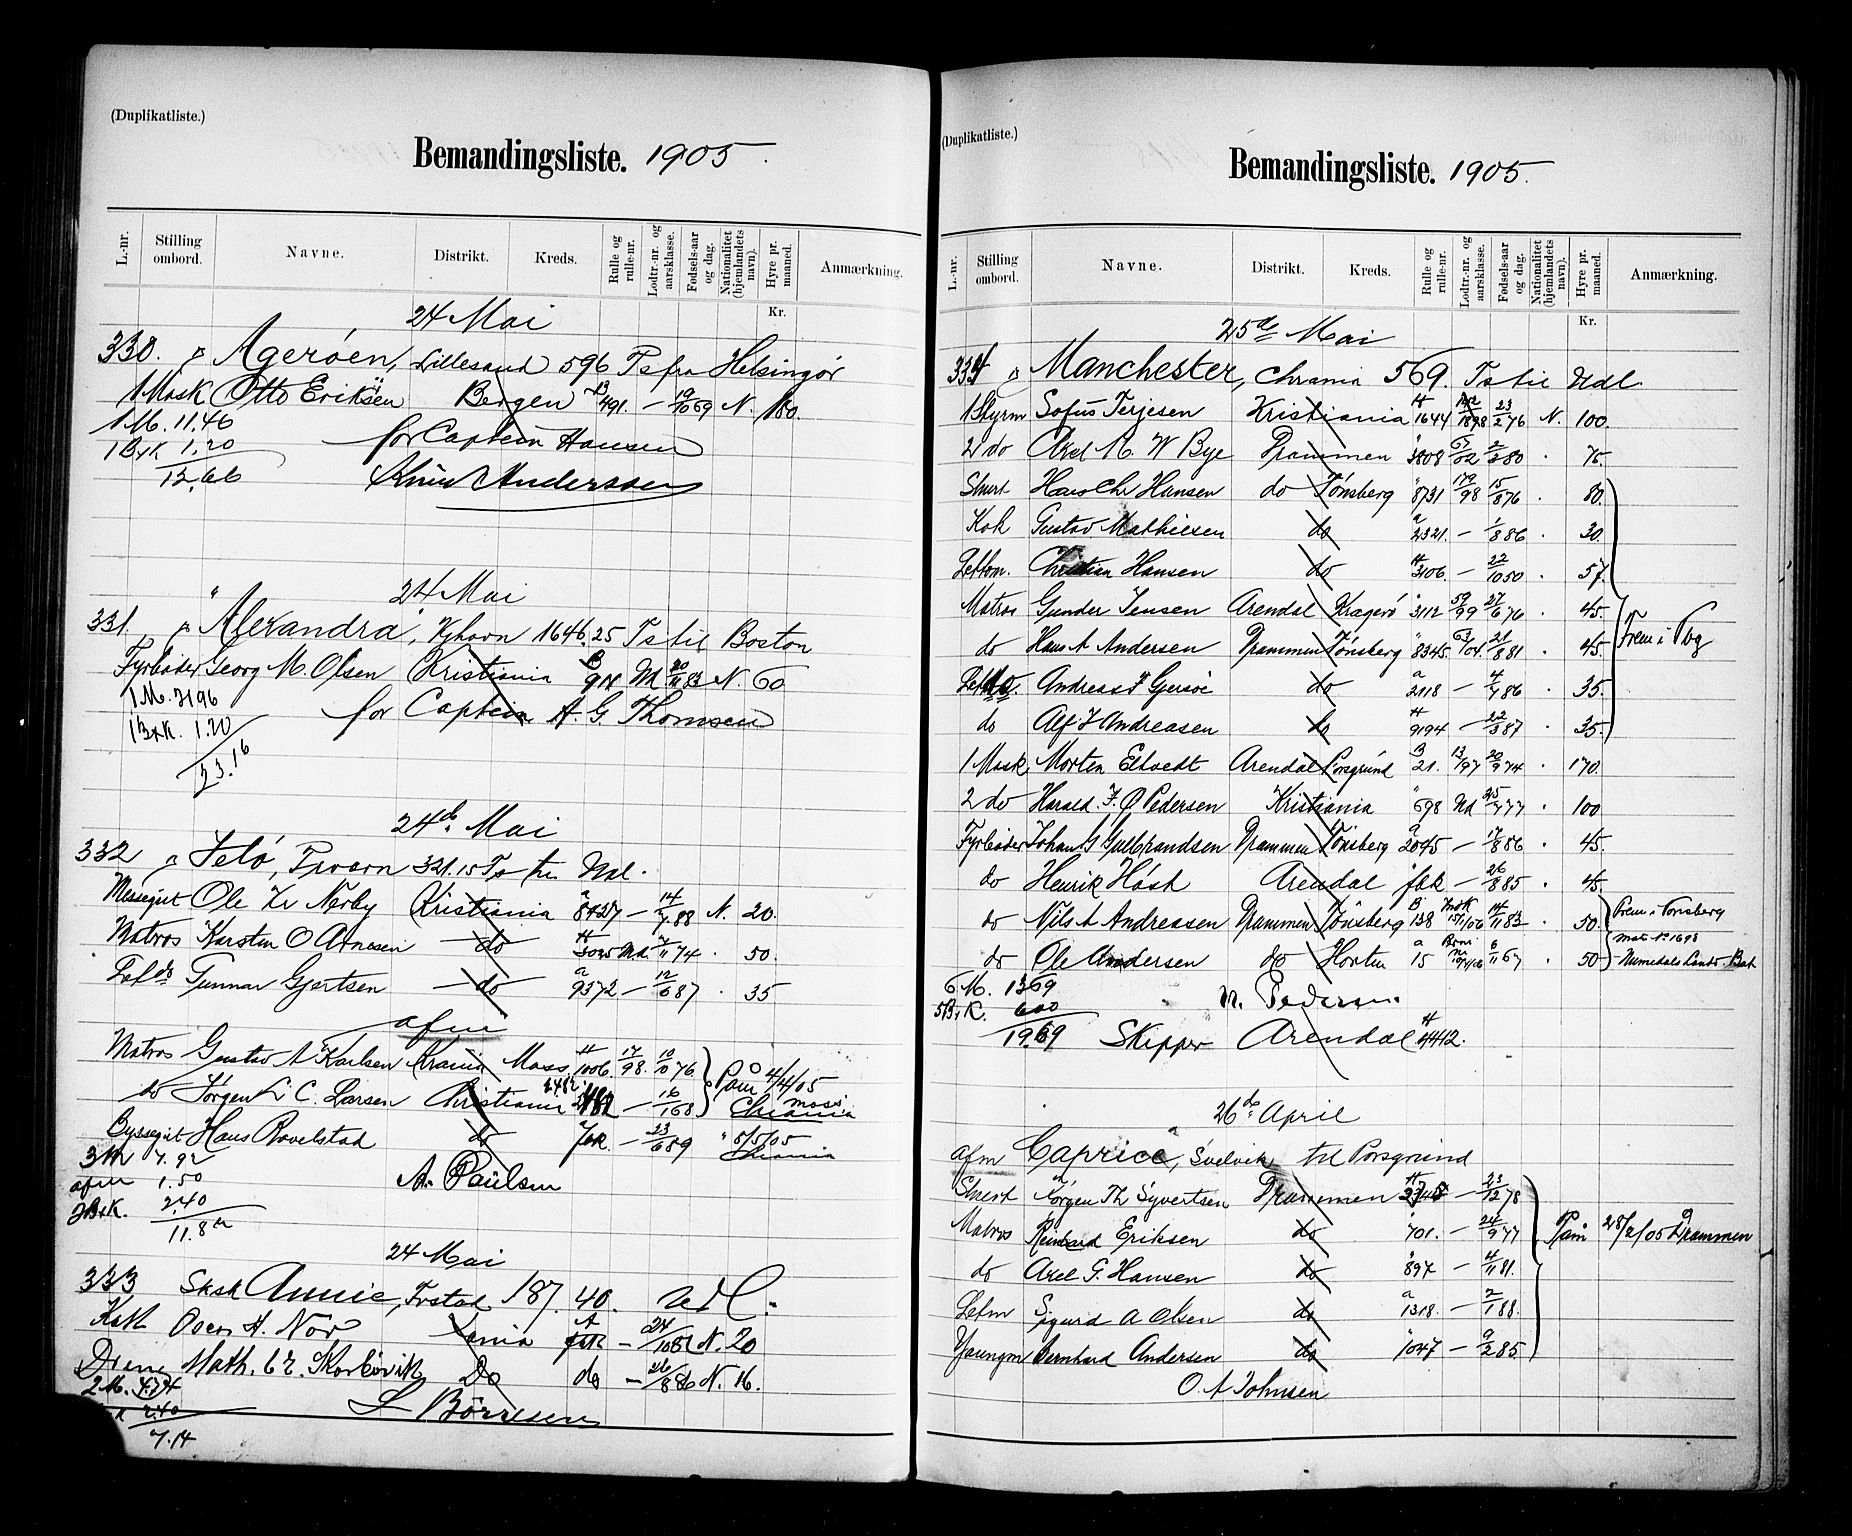 (Duplikatliste.)
Bemandingsliste. 1905.
L.-nr. Stilling ombord. Navne. Distrikt. Kreds. Rulle og rulle-nr. Lodtr.-nr. og aarsklasse. Fødsels-aar og dag. Nationalitet (hjemlandets navn). Hyre pr. maaned. Anmærkning.
Kr.
24 Mai
330. Agerøen, Lillesand 596 Ts fra Helsingør
1 Mask Otto Eriksen Bergen 491. — 19/10 69 N. 180.
1 M. 11.46 for Captein Hansen
1 B&K 1.20
12,66 Knud Anderssen
24 Mai
331. Alexandra, Kjhavn 1646.25 Ts til Boston
Fyrbøder Georg M. Olsen Kristiania B 914 Md 20/11 83 N. 60
1 M. 2196 for Captein A. G. Thomsen
1 B&K. 1.20
23.16
24de Mai
332 Jelø, 321.15 Ts
Messegut Ole Kr Nerby Kristiania a 8427 — 14/7 88 N. 20.
Matros Karsten O Arnesen — do H 3025 Md 74 . 50.
Letm do Gunnar Gjertsen — do a 9372 — 12/6 87 . 35
afm
Matros Gustav A Karlsen Krania Moss H 1006. 17/98. 10/10 76. Paam 4/4/05
do Jørgen L C. Larsen Christiania 2482 — 16/1 68 Moss Chriania
Byssegut Hans Bovelstad do fbk. — 23/6 89 " 5/5/05 Chriania
3 M 7.92
afm 1.50 A. Paulsen
2 B&K. 2.40
11.82
24 Mai
333 Sksk Annie, Frstad 187. 40. Udl.
Kok Oscar A. Nor Xania A fbk — 24/10 82 N. 20
Math. Skorbøvik Do do — 26/8 86 N. 16.
2 M. 4.74
2.40 L Børresen
7.14
(Duplikatliste.)
Bemandingsliste. 1905.
L.-nr. Stilling ombord. Navne. Distrikt. Kreds. Rulle og rulle-nr. Lodtr.-nr. og aarsklasse. Fødsels-aar og dag. Nationalitet (hjemlandets navn). Hyre pr. maaned. Anmærkning.
Kr.
25de Mai
334 Manchester, Chrania 569. Ts til Udl.
1 Styrm Sofus Terjesen Kristiania H 1644 1898 23/2 76 N. 100.
2 do Axel M. W Bye Drammen " 3808 67/02 2/2 80 . 75.
Stuert Hans Chr Hansen do Tønsberg " 8731 179/98 15/8 76 . 80.
Kok Gustav Mathiesen do a 2321. — 1/8 86 . 30.
Christian Hansen do H 3106. — 22/10 50 . 57.
Matros Gunder Jensen Arendal Kragerø " 3112 59/99 27/6 76 . 45. Frem i Tbg
do Hans A Andersen Drammen Tønsberg " 8345. 63/04. 21/8 81 . 45.
Andreas F Gjersøe do a 2118 — 4/7 86 . 35.
do Alf J Andreasen do H 9194 — 22/3 87 . 35.
1 Mask Morten Eltvedt Arendal Porsgrund B 21. 13/97 20/9 74 . 170.
2 do Harald. F. Ø. Pedersen Kristiania " 698 Md 25/7 77 . 100
Fyrbøder Johan G Gulbrandsen Drammen Tønsberg a 2095 — 17/8 86 . 45.
do Henrik Høst Arendal " fbk — 26/8 85 . 45.
do Nils A Andreassen Drammen Tønsberg B 138 14/11 83 . 50. Frem i Tønsberg
do Ole Andersen do Horten a 15 6/11 67 . 50
6 M. 1369 N. Pedersen
5 B&K. 600
1969 Skipper Arendal H 4412.
26de April
afm Caprice, Svelvik til Porsgrund
Stuert Jørgen Th Syvertsen Drammen H — 23/12 78
Matros Reinhard Eriksen do " 701. — 24/9 77 Paam 28/2/05 Drammen
do Axel G. Hansen do " 897 — 4/11 81.
Letm Sigurd A Olsen do a 1318. — 2/1 88.
Youngm Bernhard Andersen do " 1047 — 9/2 85.
O. A Johnsen